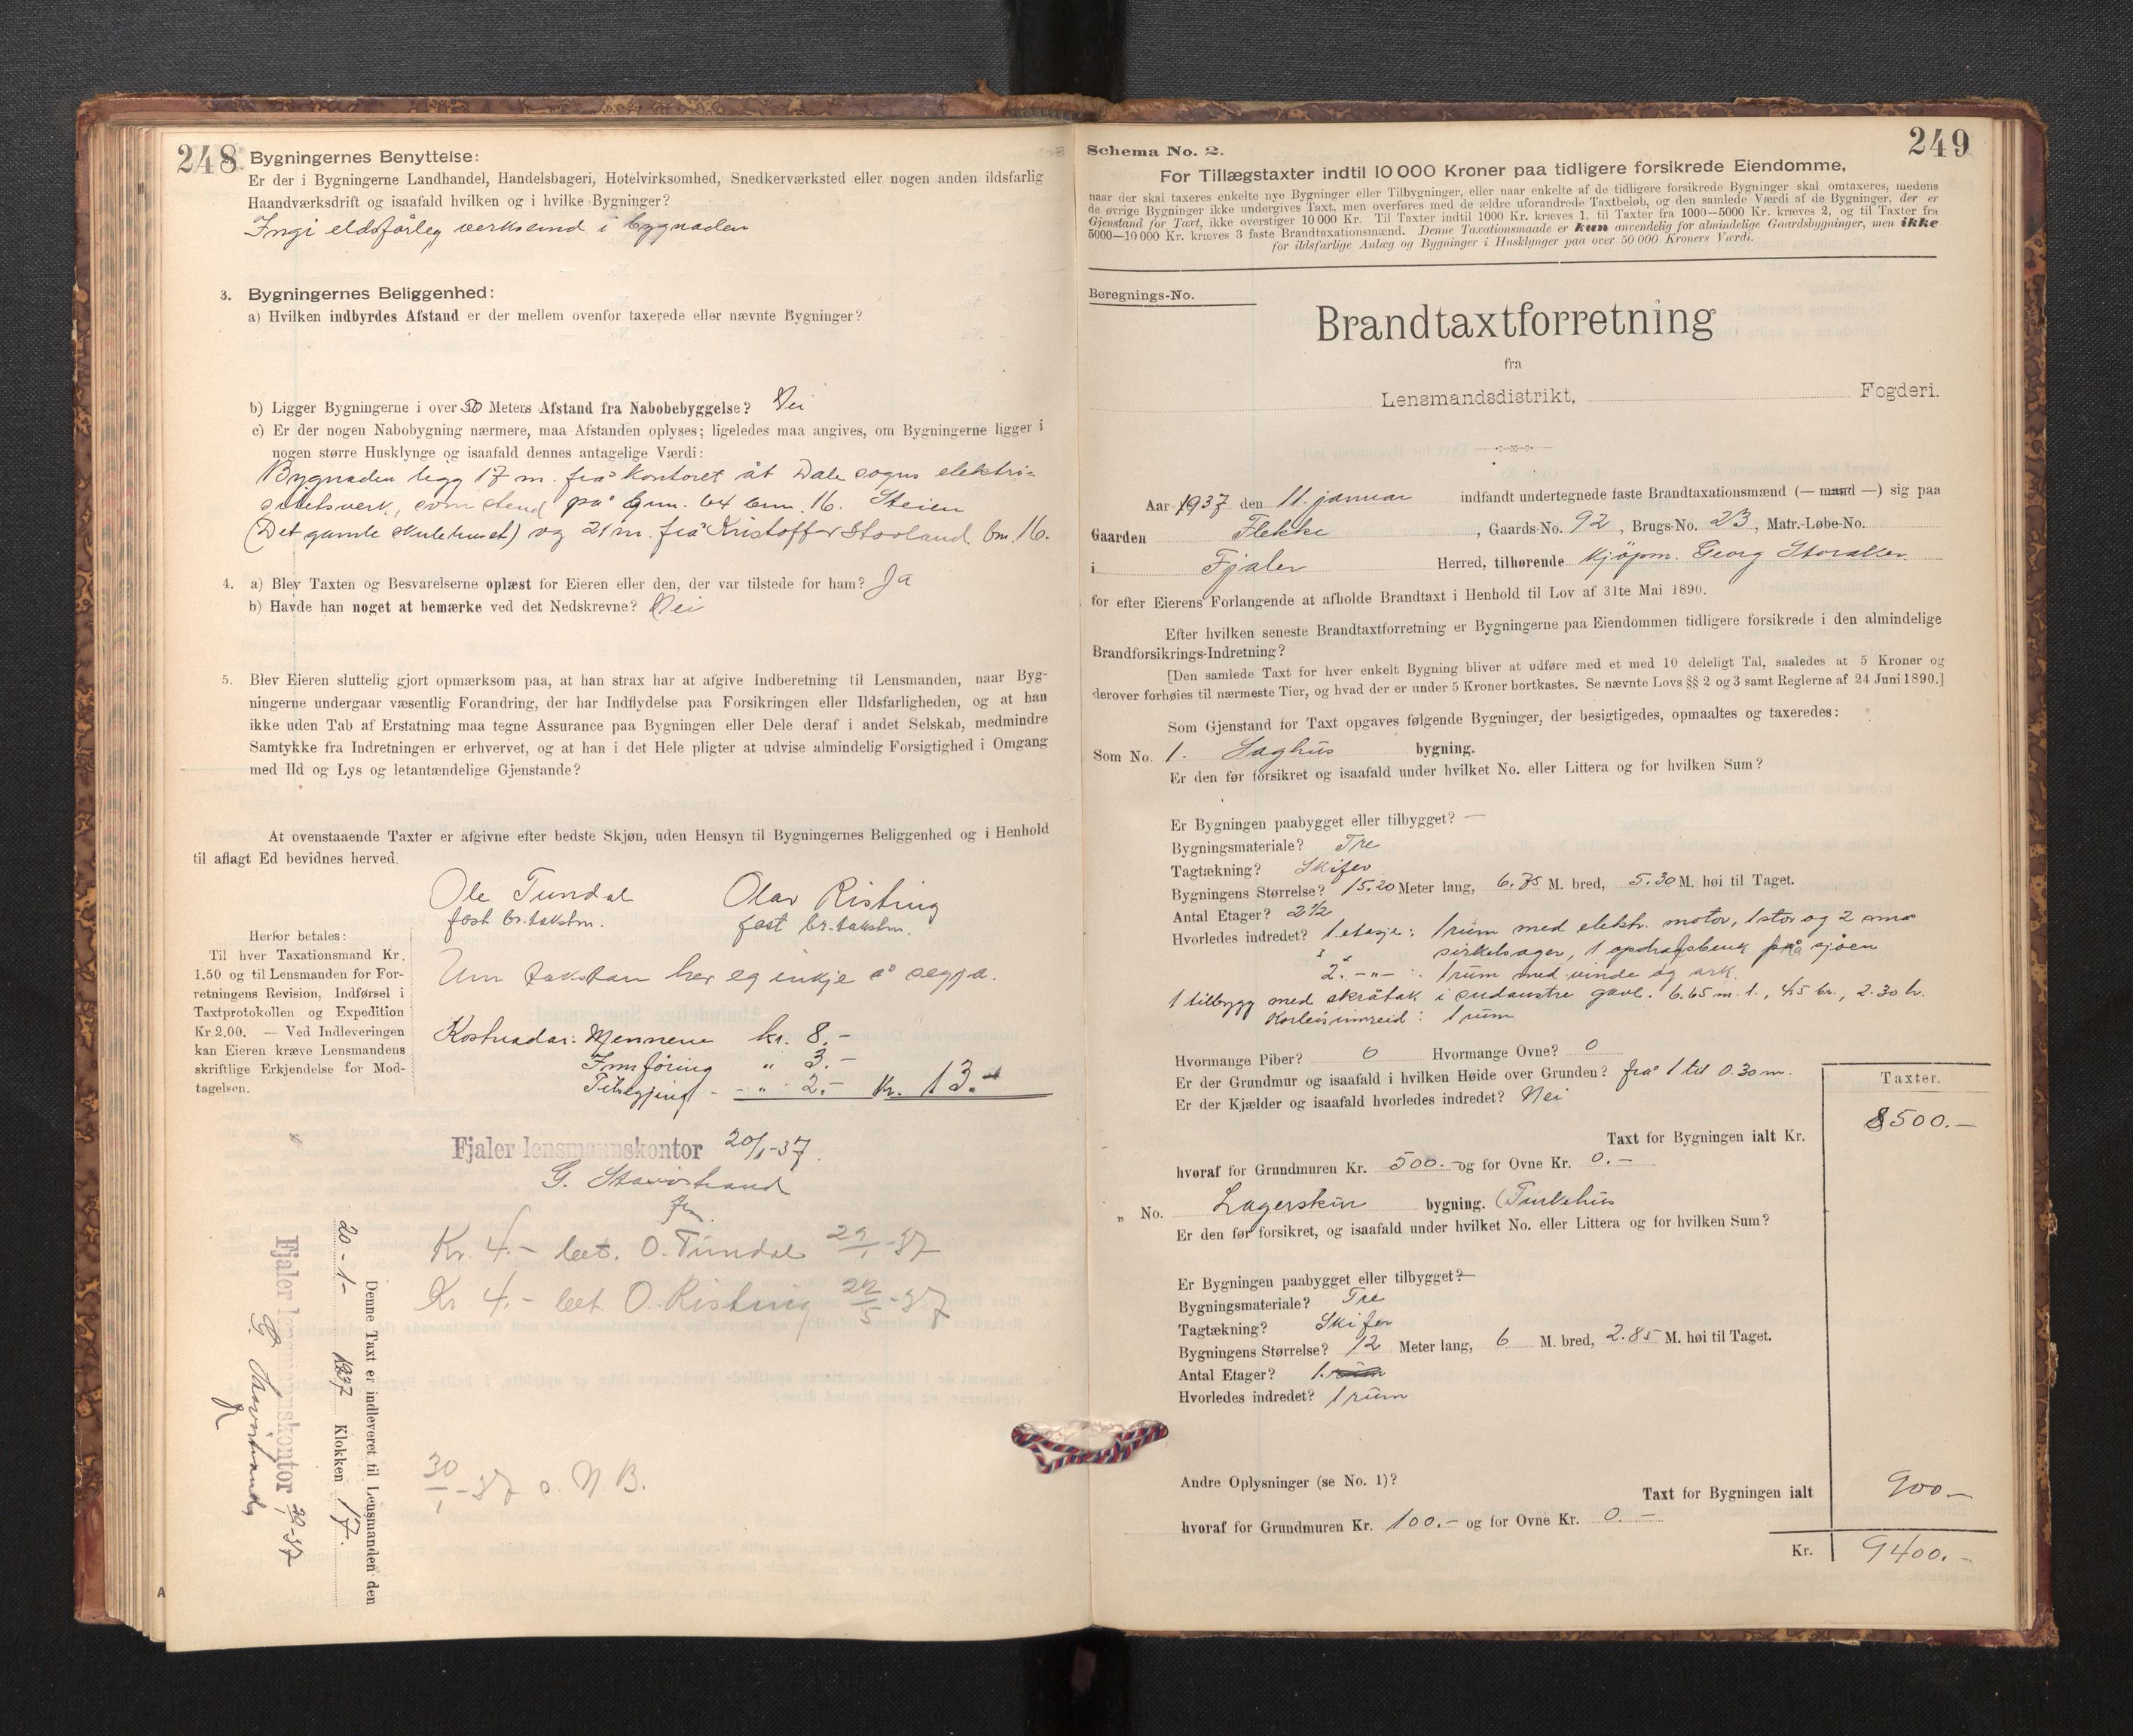 248
Bygningernes Benyttelse:
Er der i Bygningerne Landhandel, Handelsbageri, Hotelvirksomhed, Snedkerværksted eller nogen anden ildsfarlig
Haandværksdrift og isaafald hvilken og i hvilke Bygninger?
Ingi eldsfårleg verksemd i bygnaden
3. Bygningernes Beliggenhed:
a) Hvilken indbyrdes Afstand er der mellem ovenfor taxerede eller nævnte Bygninger?
b) Ligger Bygningerne i over 50 Meters Afstand fra Nabobebyggelse? Nei
c) Er der nogen Nabobygning nærmere, maa Afstanden oplyses; ligeledes maa angives, om Bygningerne ligger i
nogen større Husklynge og isaafald dennes antagelige Værdi:
Bygnaden ligg 17 m. frå kontoret åt Dale sogns elektri-
sitetsverk, som stend på gnr. 64 bnr. 16. Steien
(Det gamle skulehuset) og 21 m. frå Kristoffer Storland bn. 16.
4. a) Blev Taxten og Besvarelserne oplæst for Eieren eller den, der var tilstede for ham? Ja
b) Havde han noget at bemærke ved det Nedskrevne? Nei
5. Blev Eieren sluttelig gjort opmærksom paa, at han strax har at afgive Indberetning til Lensmanden, naar Byg-
ningerne undergaar væsentlig Forandring, der har Indflydelse paa Forsikringen eller Ildsfarligheden, og at han
ikke uden Tab af Erstatning maa tegne Assurance paa Bygningen eller Dele deraf i andet Selskab, medmindre
Samtykke fra Indretningen er erhvervet, og at han i det Hele pligter at udvise almindelig Forsigtighed i Omgang
med Ild og Lys og letantændelige Gjenstande?
At ovenstaaende Taxter er afgivne efter bedste Skjøn, uden Hensyn til Bygningernes Beliggenhed og i Henhold
til aflagt Ed bevidnes herved.
Ole Tundal Olav Risting
fast br.takstm. fast br.takstm.
Herfor betales:
Til hver Taxationsmand Kr.
1.50 og til Lensmanden for For-
retningens Revision, Indførsel i
Taxtprotokollen og Expedition
Kr. 2.00. — Ved Indleveringen
kan Eieren kræve Lensmandens
skriftlige Erkjendelse for Mod-
tagelsen.
Um taksten her eg inkje å segja.
Kostnadar: Mennene kr. 8.-
Innføring " 3.-
- " 2.- Kr. 13.-
Fjaler lensmannskontor 20/1-37.
G. Stavöstrand
Kr. 4.- bet. O. Tundal 29/1-37
Kr. 4.- bet. O. Risting 22/5-37
30/1-37 s. N. B.
Denne Taxt er indleveret til Lensmanden den
20-1- 1937 Klokken 17.
Fjaler lensmannskontor 20/1-37
G. Stavöstrand
249
Schema No. 2.
For Tillægstaxter indtil 10 000 Kroner paa tidligere forsikrede Eiendomme,
naar der skal taxeres enkelte nye Bygninger eller Tilbygninger, eller naar enkelte af de tidligere forsikrede Bygninger skal omtaxeres, medens
de øvrige Bygninger ikke undergives Taxt, men overføres med de ældre uforandrede Taxtbeløb, og den samlede Værdi af de Bygninger, der er
Gjenstand for Taxt, ikke overstiger 10 000 Kr. Til Taxter indtil 1000 Kr. kræves 1, til Taxter fra 1000—5000 Kr. kræves 2, og til Taxter fra
5000—10 000 Kr. kræves 3 faste Brandtaxationsmænd. Denne Taxationsmaade er kun anvendelig for almindelige Gaardsbygninger, men ikke
for ildsfarlige Anlæg og Bygninger i Husklynger paa over 50 000 Kroners Værdi.
Beregnings-No.
Brandtaxtforretning
fra
Lensmandsdistrikt, Fogderi.
Aar 1937 den 11. januar indfandt undertegnede faste Brandtaxationsmænd (— mand —) sig paa
Gaarden Flekke, Gaards-No. 92, Brugs-No. 23, Matr.-Løbe-No.
i Fjaler Herred, tilhørende kjöpm. Georg
for efter Eierens Forlangende at afholde Brandtaxt i Henhold til Lov af 31te Mai 1890.
Efter hvilken seneste Brandtaxtforretning er Bygningerne paa Eiendommen tidligere forsikrede i den almindelige
Brandforsikrings-Indretning?
[Den samlede Taxt for hver enkelt Bygning bliver at udføre med et med 10 deleligt Tal, saaledes at 5 Kroner og
derover forhøies til nærmeste Tier, og hvad der er under 5 Kroner bortkastes. Se nævnte Lovs §§ 2 og 3 samt Reglerne af 24 Juni 1890.]
Som Gjenstand for Taxt opgaves følgende Bygninger, der besigtigedes, opmaaltes og taxeredes:
Som No. 1. Saghus bygning.
Er den før forsikret og isaafald under hvilket No. eller Littera og for hvilken Sum?
Er Bygningen paabygget eller tilbygget? —
Bygningsmateriale? Tre
Tagtækning? Skifer
Bygningens Størrelse? 15.20 Meter lang, 6.75 M. bred, 5.30 M. høi til Taget.
Antal Etager? 2 1/2
Hvorledes indredet? 1. etasje: 1 rum med elektr. motor, 1 stor og 2 små
sirkelsager, 1 på sjöen
2. -"- : 1 rum med vinde og ark.
1 tilbygg med skråtak i sudaustre gavl. 6.65 m. l., 4.5 br., 2.30 h.
Korleis innreid: 1 rum
Hvormange Piber? 0 Hvormange Ovne? 0
Er der Grundmur og isaafald i hvilken Høide over Grunden? frå 1 til 0.30 m.
Er der Kjælder og isaafald hvorledes indredet? Nei
Taxter.
Taxt for Bygningen ialt Kr. 8500.—
hvoraf for Grundmuren Kr. 500.- og for Ovne Kr. 0.-
" No. Lagerskur bygning.
Er den før forsikret, og isaafald under hvilket No. eller Littera og for hvilken Sum?
Er Bygningen paabygget eller tilbygget? —
Bygningsmateriale? Tre
Tagtækning? Skifer
Bygningens Størrelse? 12 Meter lang, 6 M. bred, 2.85 M. høi til Taget.
Antal Etager? 1.
Hvorledes indredet? 1 rum
Andre Oplysninger (se No. 1)?
Taxt for Bygningen ialt 900.—
hvoraf for Grundmuren Kr. 100.- og for Ovne Kr. 0.-
Kr. 9400.-